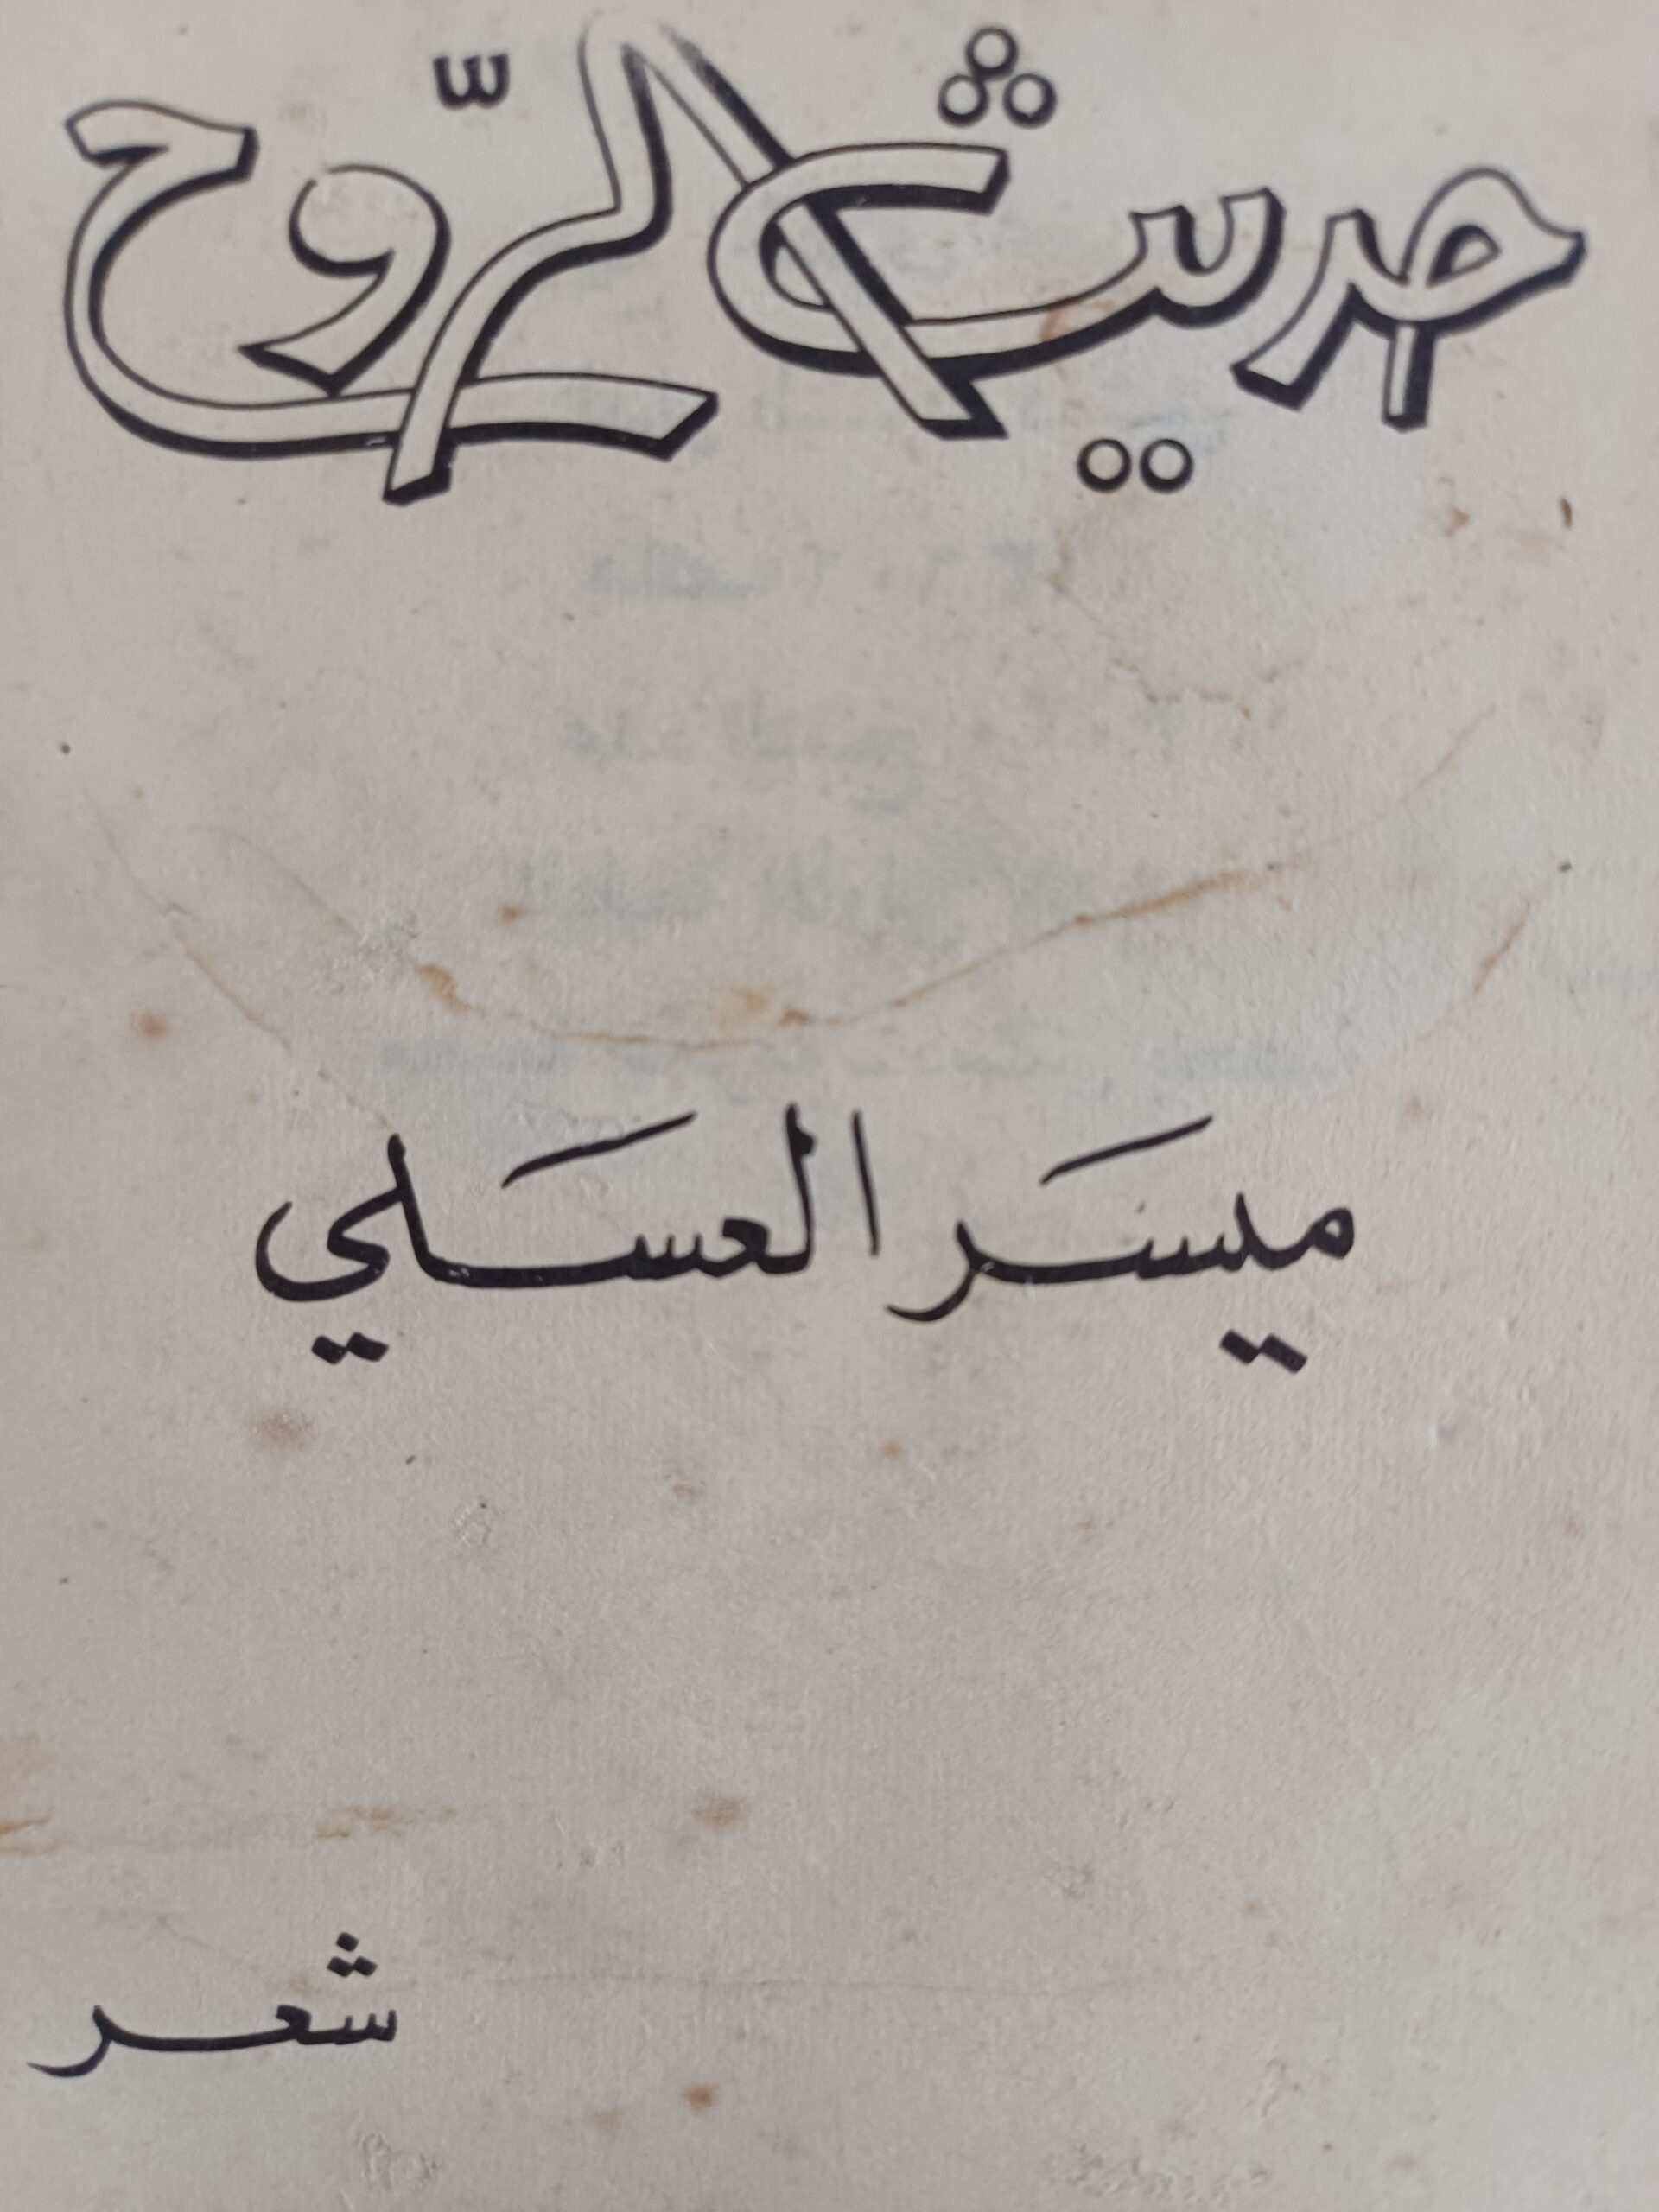 حديث الرّوح
ميسَر العسَلي
شعر